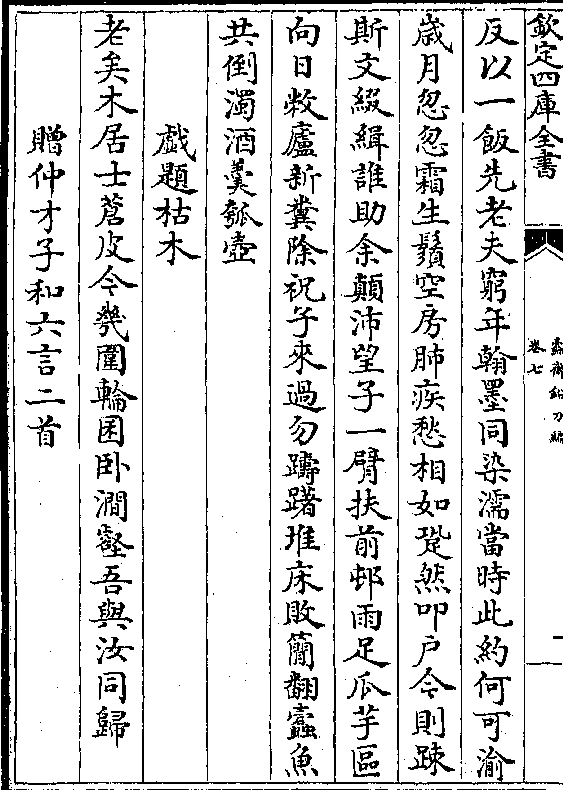 欽定四庫全書
蠹齋鉛刀編
卷七
反以一飯先老夫窮年翰墨同染濡當時此約何可渝
歳月忽忽霜生鬚空房肺疾愁相如跫然叩户今則踈
斯文綴緝誰助余顛沛望子一臂扶前邨雨足瓜芋區
向日敝廬新糞除祝子來過勿躊躇堆床敗簡翻蠧魚
共倒濁酒羮瓠壺
戯題枯木
老矣木居士蒼皮今㡬圍輪囷卧澗壑吾與汝同歸
贈仲才子和六言二首